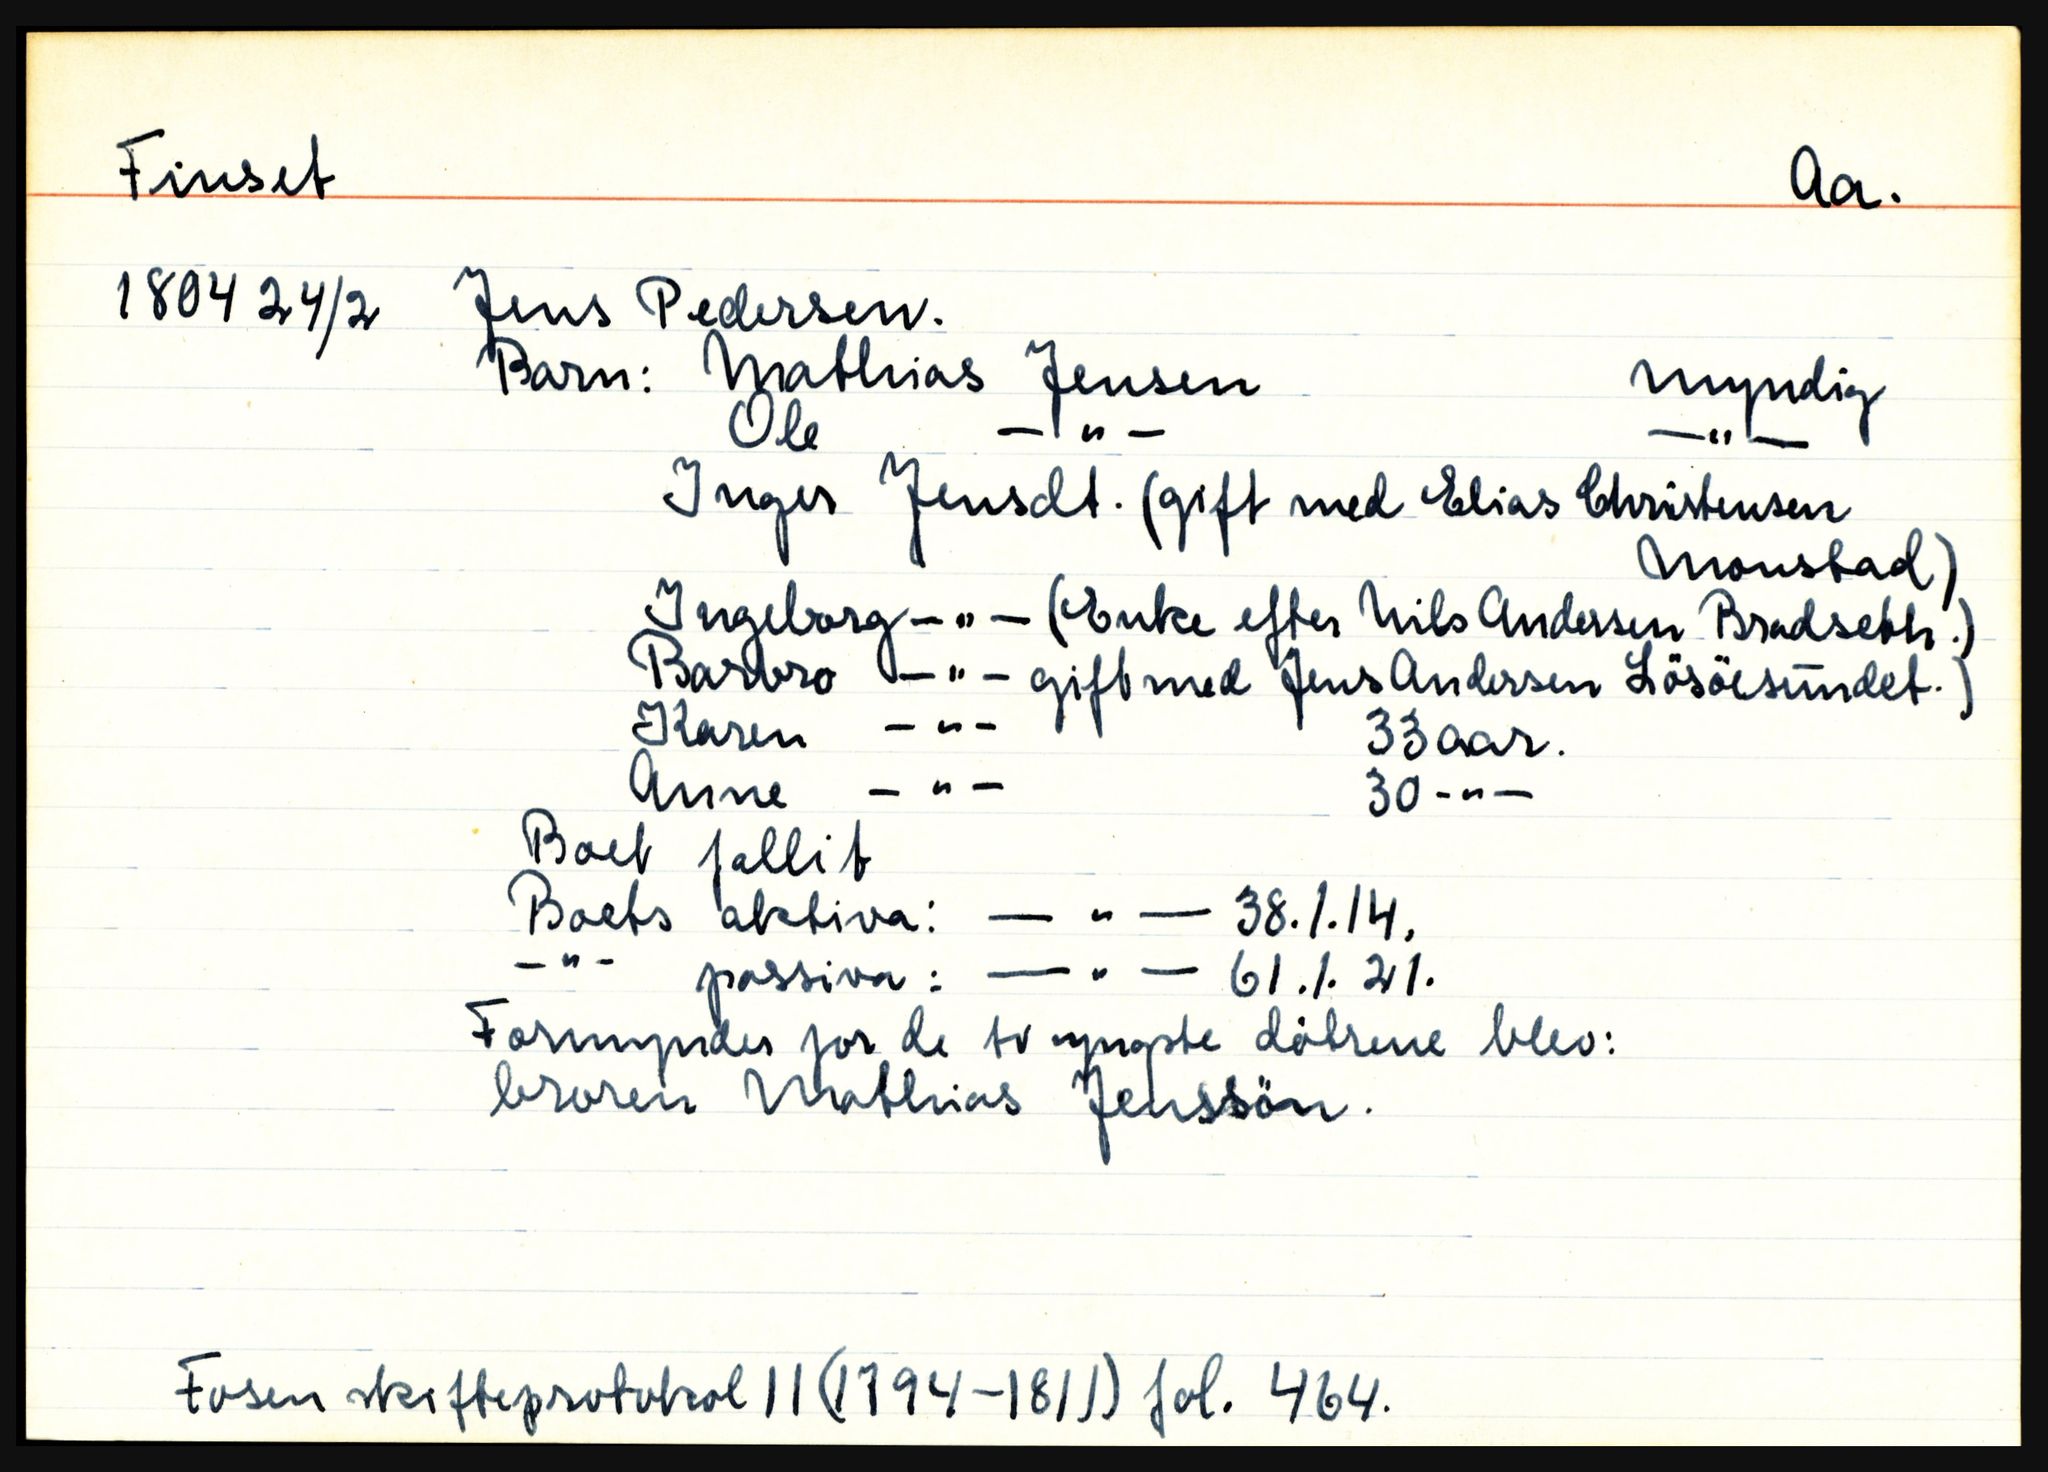 Finset Aa.
1804 24/2 Jens Pedersen.
Barn: Mathias Jensen myndig
Ole —"— —"—
Inger Jensdt. (gift med Elias Christensen
Monstad)
Ingeborg —"— (Enke efter Nils Andersen Bradseth.)
Barbro —"— gift med Jens Andersen Lösöesundet.)
Karen —"— 33 aar.
Anne —"— 30 —"—
Boet fallit
Boets aktiva: —"— 38.1.14.
—"— passiva: —"— 61.1.21.
Formynder for de to yngste döbrene blev:
broren Mathias Jenssön.
Fosen skifteprotokol 11 (1794-1811) fol. 464.